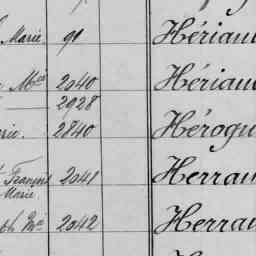 Marie. 91 Hériau
Mie 2040 Hériau
2928
rie. 2840 Hérogu
François 2041 Herrau
Marie.
th Mie 2042 Herrau